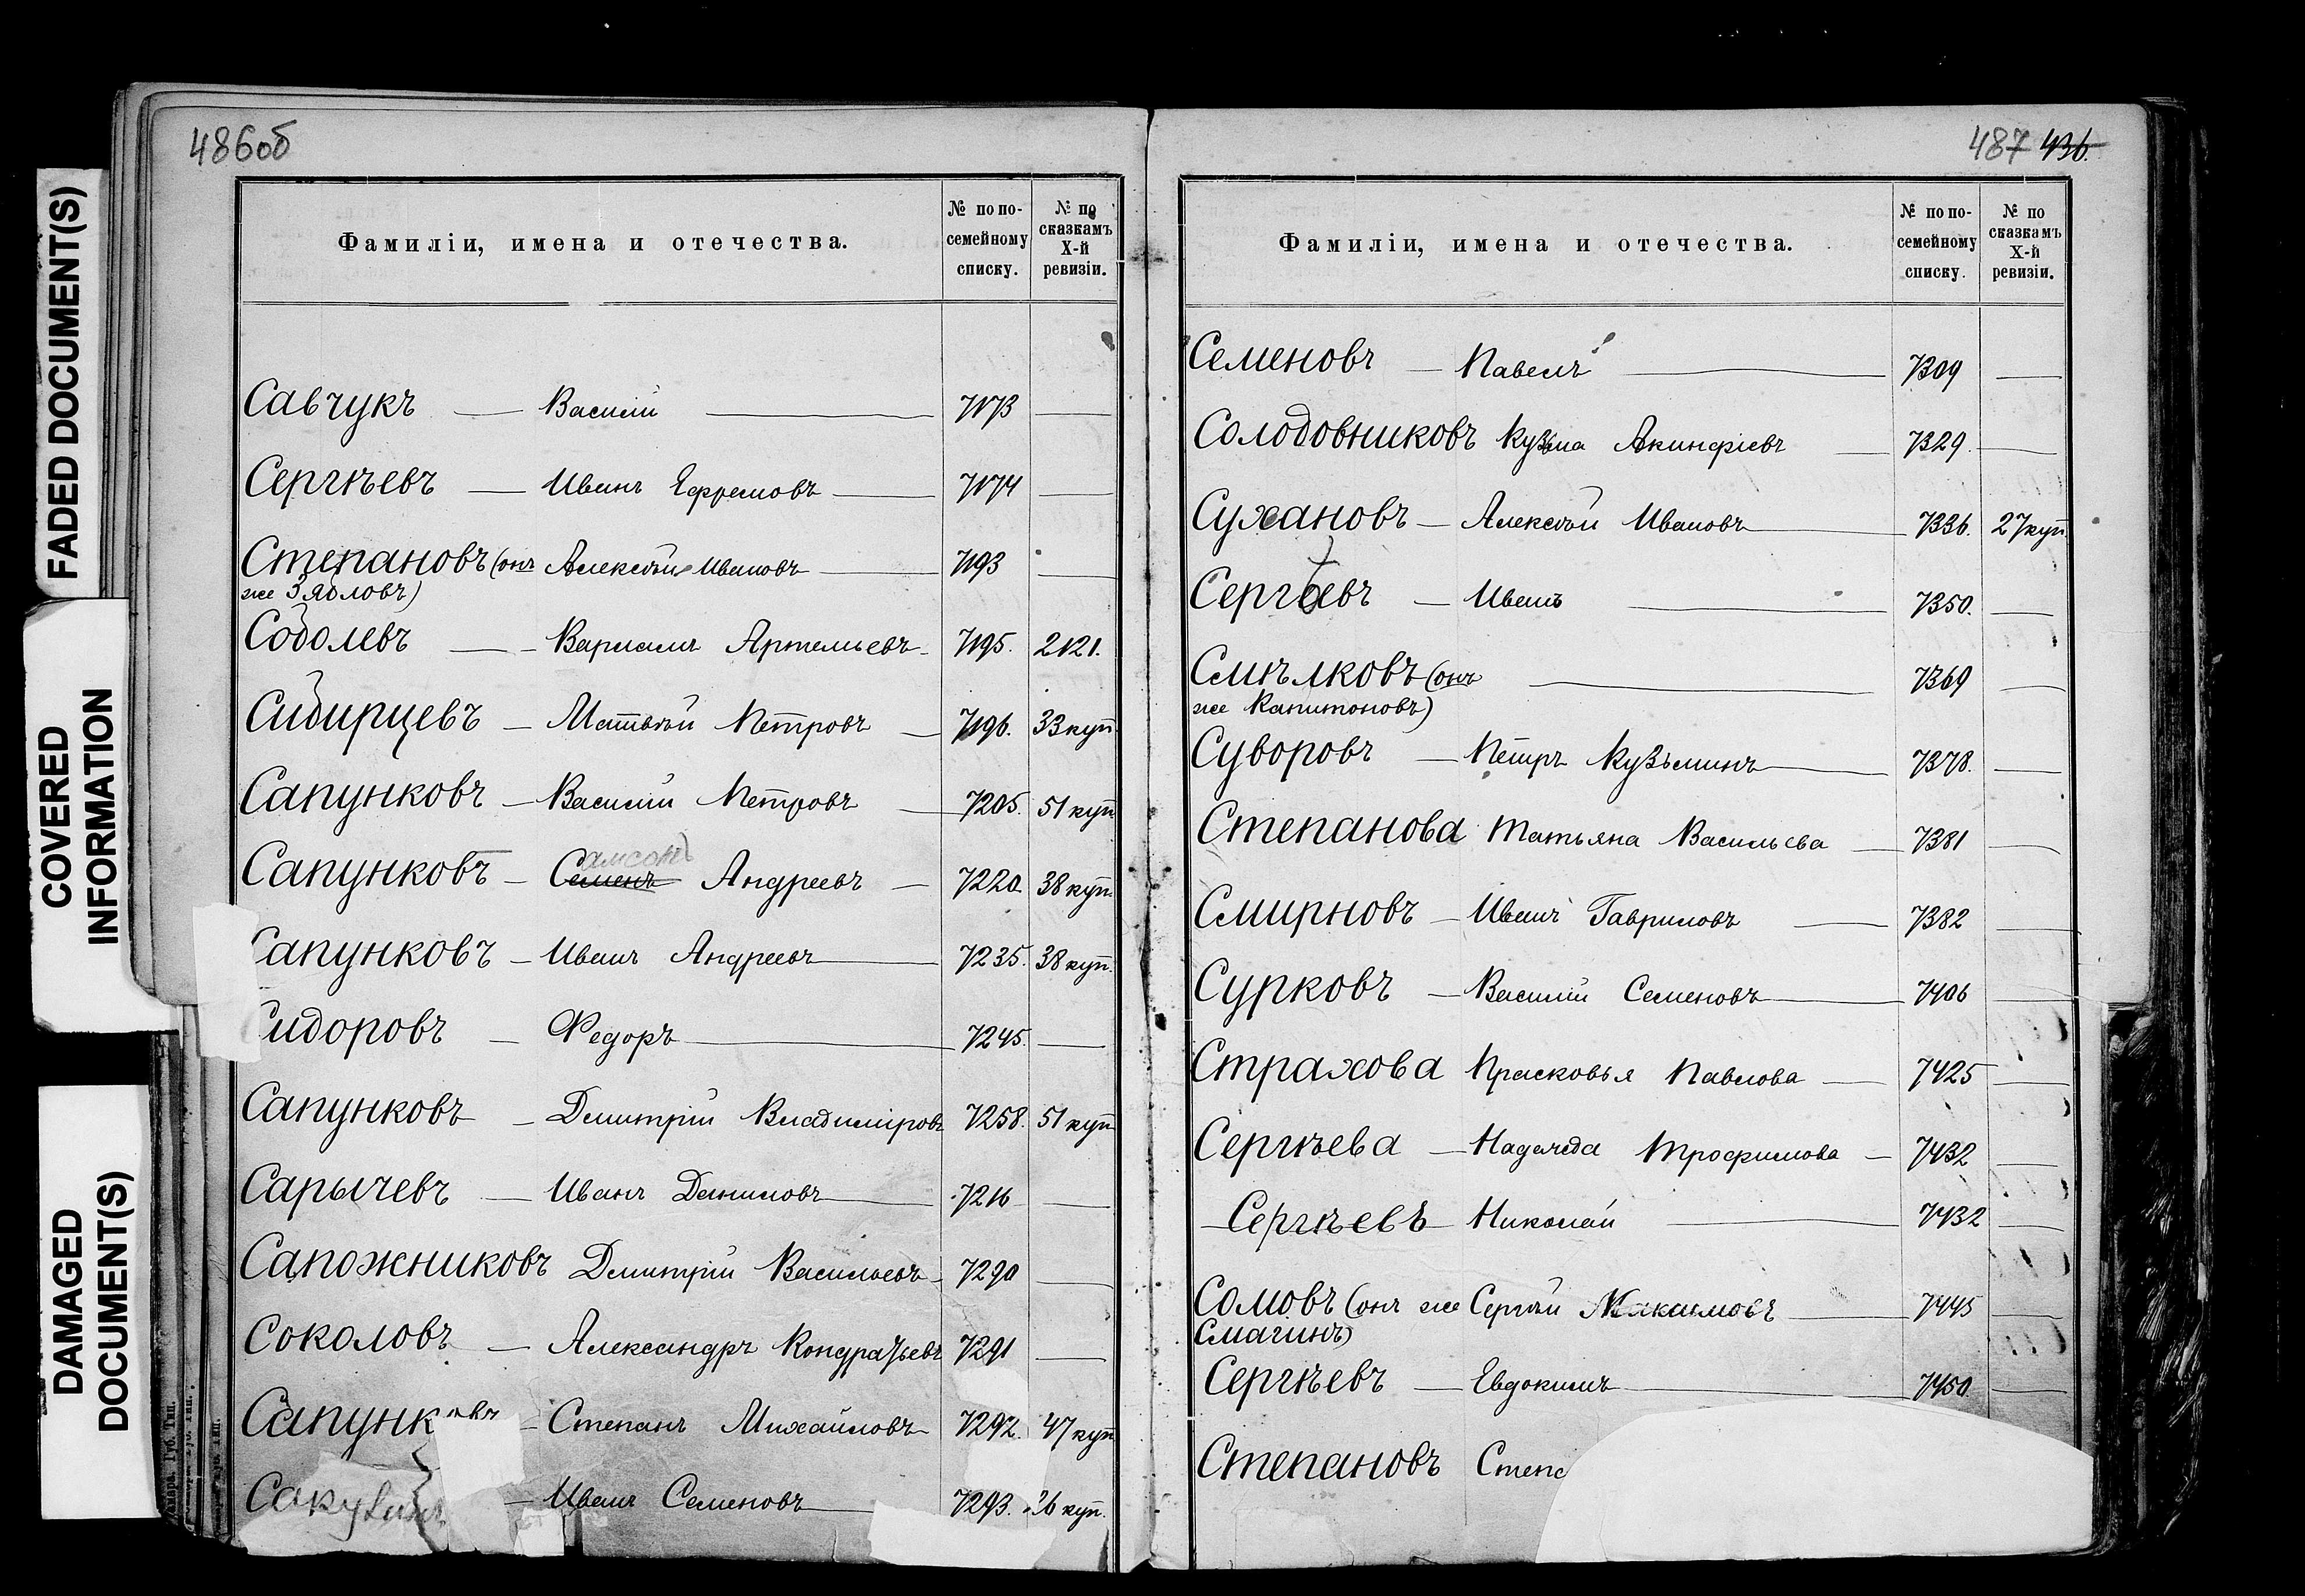 FADED DOCUMENT(S)
COVERED
INFORMATION
DAMAGED
DOCUMENT(S)
486об
Фамиліи, имена и отечества.
№ по по-
семейному
списку.
№ по
сказкамъ
X-й
ревизіи.
Савчукъ — Василій — 7173 —
Сергѣевъ — Иванъ Ефремовъ — 7174 —
Степановъ (онъ Алексѣй Ивановъ — 7193 —
же Зябловъ)
Соболевъ — Варламъ Артемьевъ 7195. 2121.
Сибирцевъ — Матвѣй Петровъ — 7196. 33 куп.
Сапунковъ — Василій Петровъ — 7205. 51 куп
Самсонъ
Сапунковъ — Семенъ Андреевъ — 7220. 38 куп.
Сапунковъ — Иванъ Андреевъ — 7235. 38 куп.
Сидоровъ — Федоръ — 7245. —
Сапунковъ — Дмитрій Владиміровъ 7258. 51 куп
Сарычевъ — Иванъ Даниловъ — 7216 —
Сапожниковъ Дмитрій Васильевъ 7290 —
Соколовъ — Александръ Кондратьевъ 7291 —
Сапунковъ — Степанъ Михайловъ 7292. 47 куп
— Иванъ Семеновъ — 7293. 26 куп.
487 436.
Фамиліи, имена и отечества.
№ по по-
семейному
списку.
№ по
сказкамъ
X-й
ревизіи.
Семеновъ — Павелъ — 7309 —
Солодовниковъ Кузьма Акинфіевъ — 7329. —
Сухановъ — Алексѣй Ивановъ — 7336. 27 куп.
Сергѣевъ — Иванъ — 7350. —
Смѣлковъ (онъ — 7369 —
же Капитоновъ)
Суворовъ — Петръ Кузьминъ — 7378. —
Степанова Татьяна Васильева — 7381 —
Смирновъ — Иванъ Гавриловъ — 7382 —
Сурковъ — Василій Семеновъ — 7406 —
Страхова Прасковья Павлова — 7425 —
Сергѣева — Надежда Трофимова — 7432 —
— Сергѣевъ — Николай — 7432 —
Сомовъ (онъ же Сергѣй Максимовъ — 7445 —
Смагинъ)
Сергѣевъ — Евдокимъ — 7450 —
Степановъ